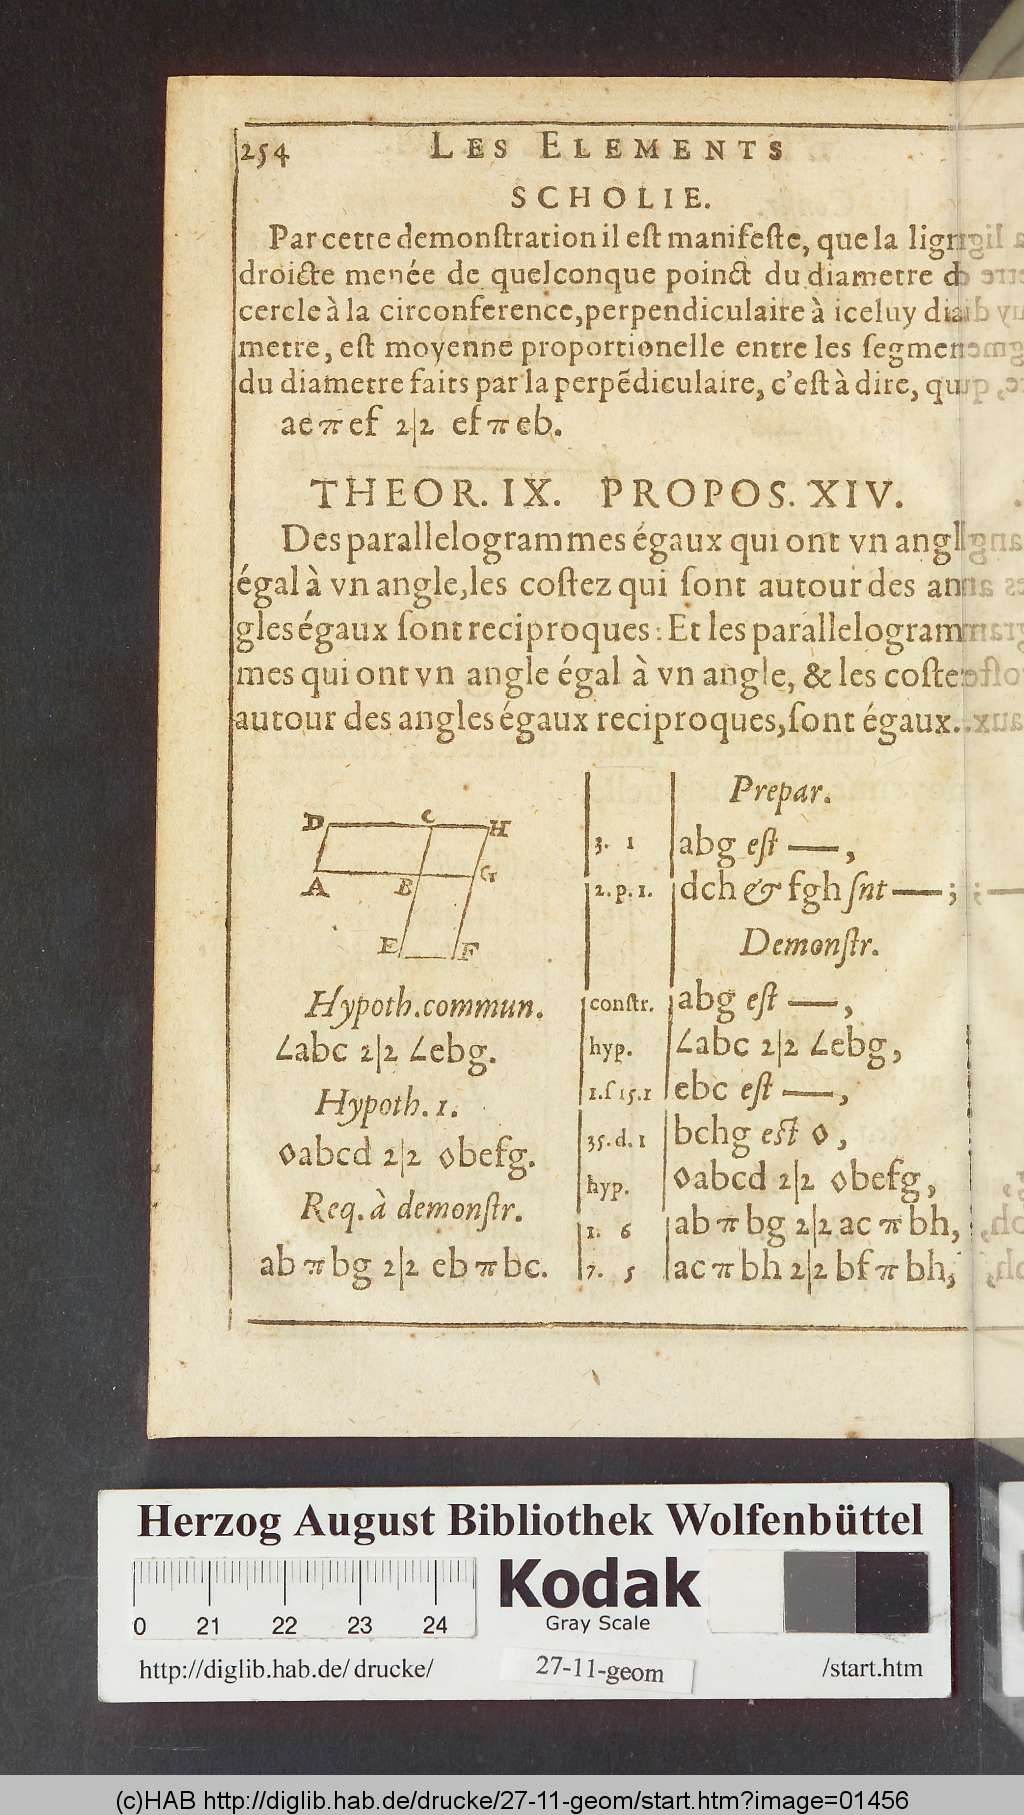 254 LES ELEMENTS
SCHOLIE.
Par cette demonſtration il eſt manifeſte, que la
droicte menée de quelconque poinct du diametre
cercle à la circonference, perpendiculaire à iceluy
metre, eſt moyenne proportionelle entre les
du diametre faits par la perpẽdiculaire, c'eſt à dire,
ae π ef 2|2 ef π eb.
THEOR. IX. PROPOS. XIV.
Des parallelogrammes égaux qui ont vn
égal à vn angle, les coſtez qui ſont autour des an
gles égaux ſont reciproques: Et les parallelogram
mes qui ont vn angle égal à vn angle, & les
autour des angles égaux reciproques, ſont égaux.
D C H
A B G
E F
Hypoth. commun.
∠abc 2|2 ∠ebg.
Hypoth. 1.
◊abcd 2|2 ◊befg.
Req. à demonſtr.
ab π bg 2|2 eb π bc.
Prepar.
3. 1 abg eſt —,
2. p. 1. dch & fgh ſnt —;
Demonſtr.
conſtr. abg eſt —,
hyp. ∠abc 2|2 ∠ebg,
1. ſ 15. 1 ebc eſt —,
35. d. 1 bchg eſt ◊,
hyp. ◊abcd 2|2 ◊befg,
1. 6 ab π bg 2|2 ac π bh,
7. 5 ac π bh 2|2 bf π bh,
Herzog August Bibliothek Wolfenbüttel
0 21 22 23 24
Kodak
Gray Scale
http://diglib.hab.de/drucke/ 27-11-geom /start.htm
(c)HAB http://diglib.hab.de/drucke/27-11-geom/start.htm?image=01456